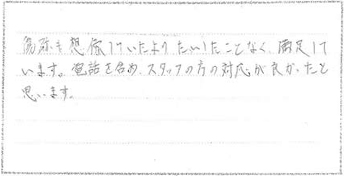 傷跡も想像していたよりたいしたことなく、満足して
います。電話を含め、スタッフの方の対応が良かったと
思います。